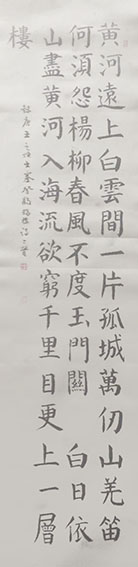 黄河遠上白雲間一片孤城萬仞山羌笛
何湏怨楊柳春風不度玉門關 白日依
山盡黄河入海流欲窮千里目更上一層
樓